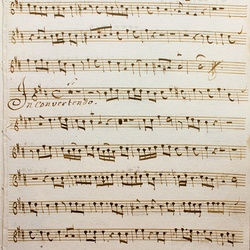 In convertendo.